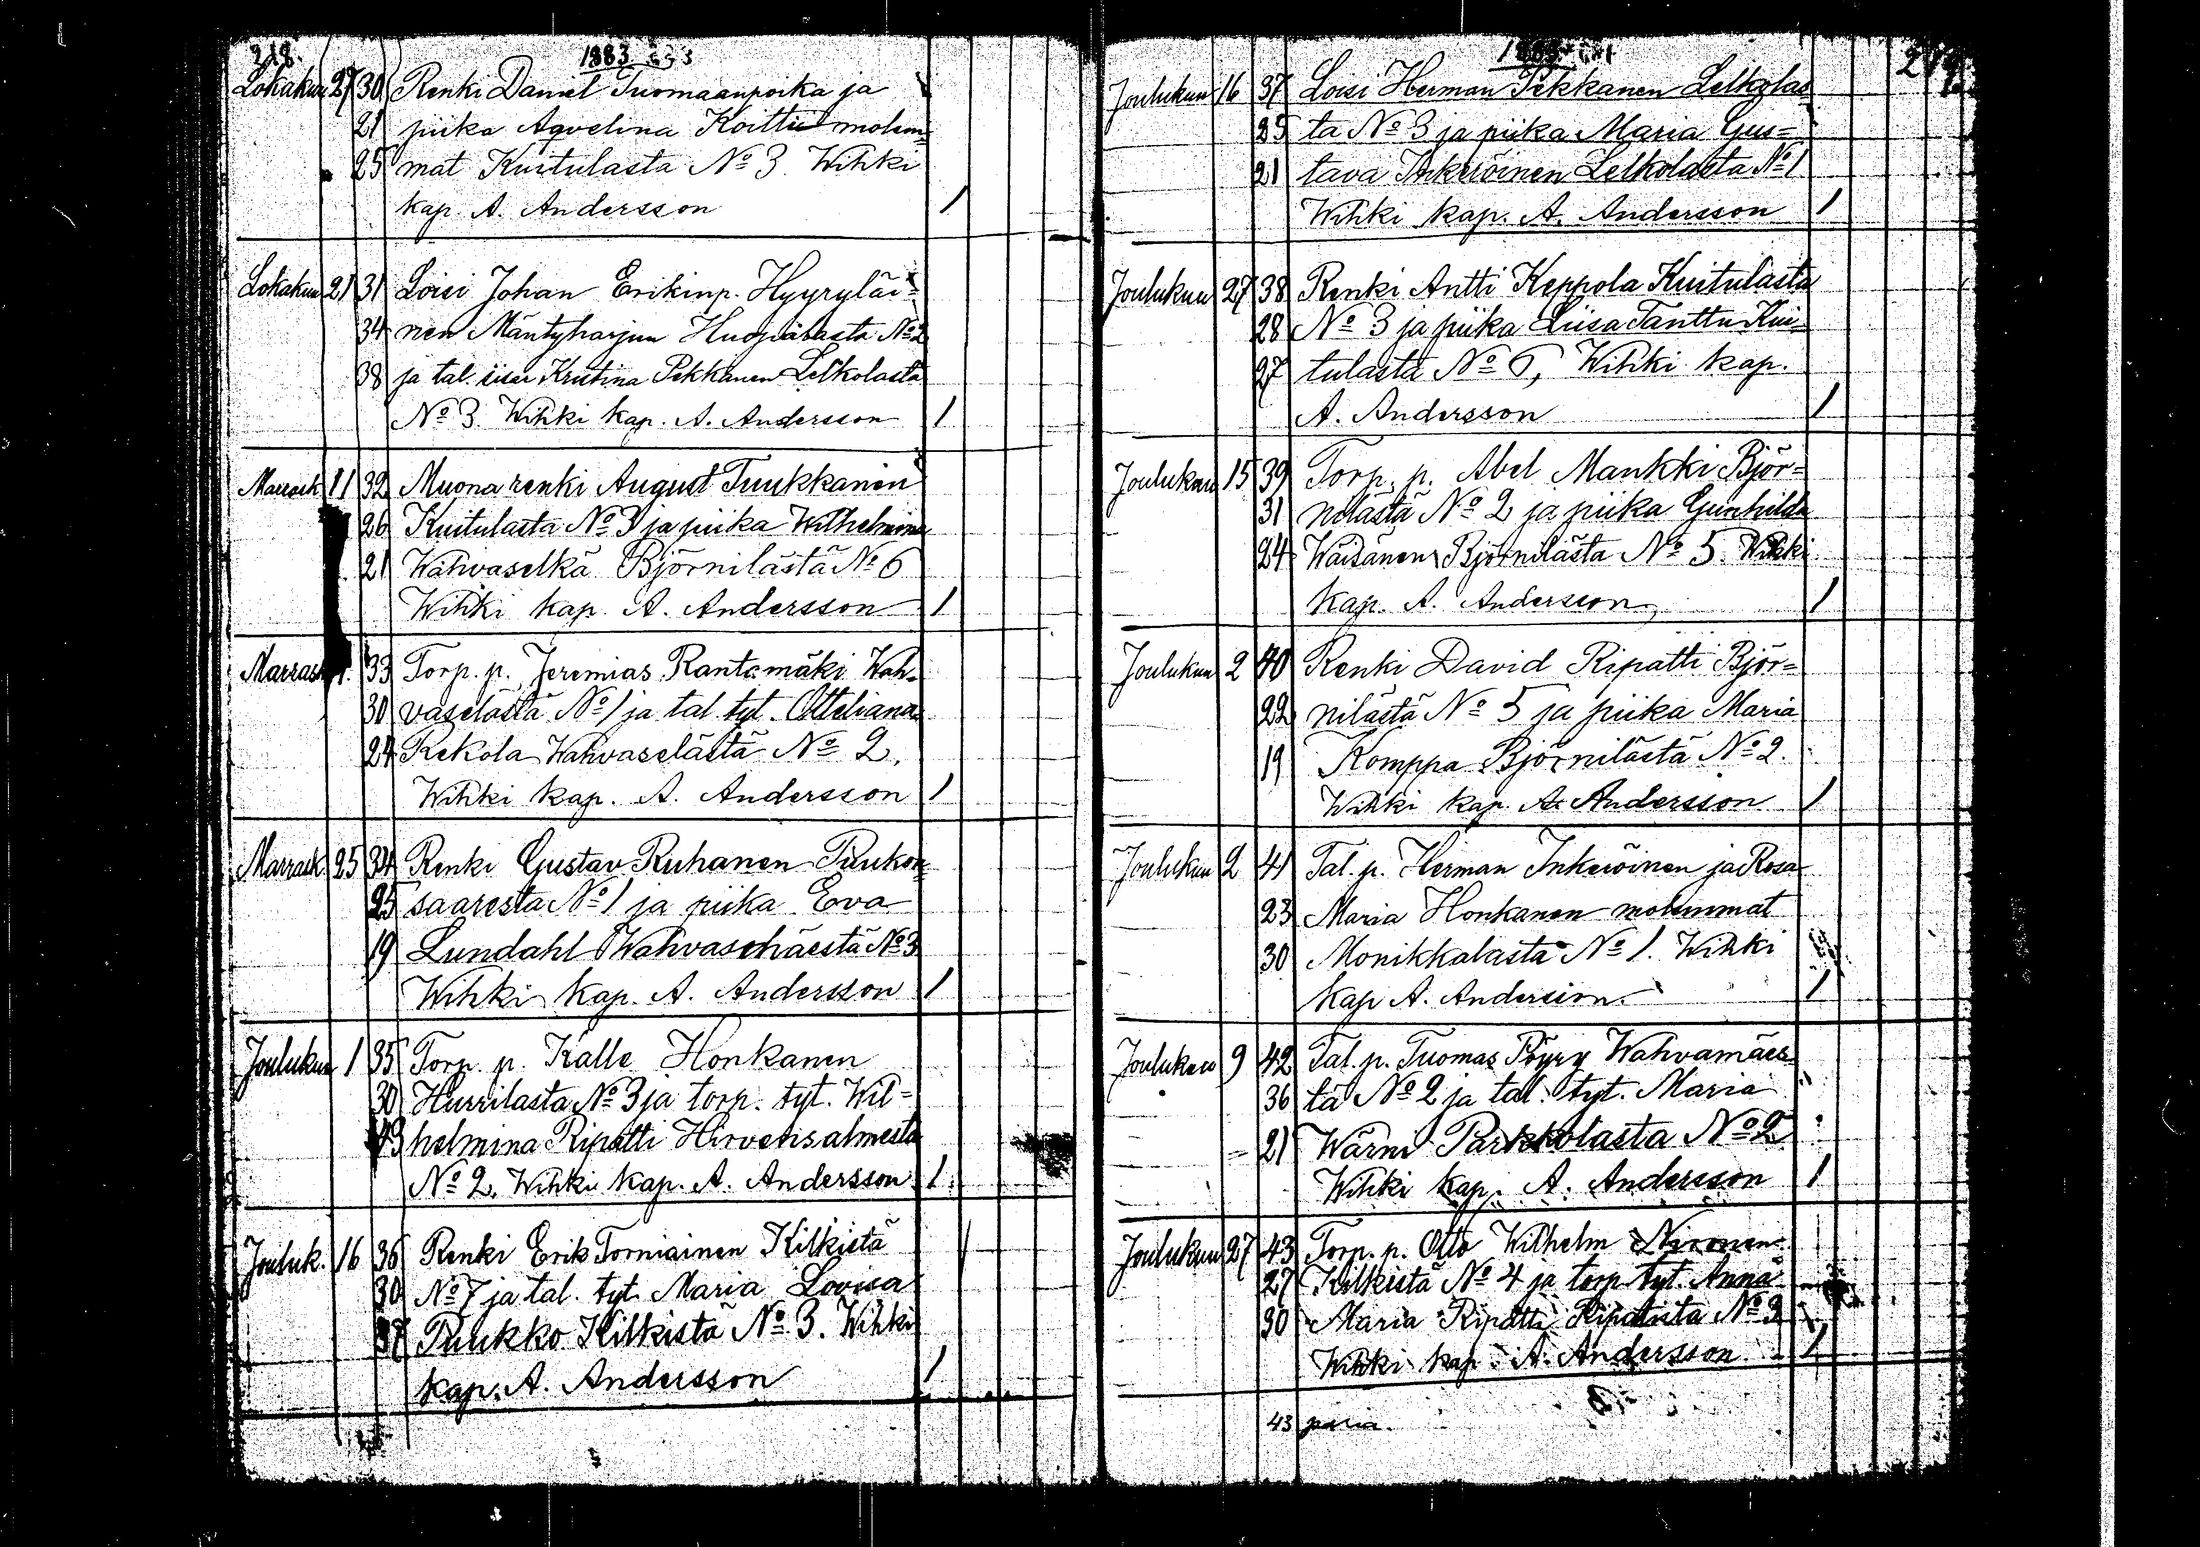 218.
1883
Lokakuu 27 30 Renki Daniel Tuomaanpoika ja
21 piika Aqvelina Koittu molem=
25 mat Kuitulasta No 3. Wihki
kap. A. Andersson 1
Lokakuu 21 31 Loisi Johan Erikinp. Hyyryläi=
34 nen Mäntyharjun Huopalasta No 2
38 ja tal. sisar Kristina Pekkanen Lelkolasta
No 3. Wihki kap. A. Andersson 1
Marrask 11 32 Muona renki August Tuukkanen
26 Kuitulasta No 3 ja piika Wilhelmina
21 Wahvaselkä Björnilästä No 6
Wihki kap. A. Andersson 1
Marrask 33 Torp. p. Jeremias Rantamäki Wah=
30 vaselästä No 1 ja tal. tyt. Otteliana
24 Kekola Wahvaselästä No 2.
Wihki kap. A. Andersson 1
Marrask 25 34 Renki Gustav Ruhanen Puukon=
25 saaresta No 1 ja piika Eva
19 Lundahl No 3
Wihki kap. A. Andersson 1
Joulukuu 1 35 Torp. p. Kalle Honkanen
30 Hurrilasta No 3 ja torp. tyt. Wil=
43 helmina Ripatti Hirvensalmesta
No 2. Wihki kap. A. Andersson 1
Jouluk. 16 36 Renki Erik Torniainen Kilkistä
30 No 7 ja tal. tyt. Maria Lovisa
37 Puukko Kilkistä No 3. Wihki
kap. A. Andersson 1
219
Joulukuu 16 37 Loisi Herman Pekkanen Lelkolas
25 ta No 3 ja piika Maria Gus=
21 tava Inkeröinen Lelkolasta No 1
Wihki kap. A. Andersson 1
Joulukuu 27 38 Renki Antti Keppola Kuitulasta
28 No 3 ja piika Liisa Tanttu Kui=
27 tulasta No 6, Wihki kap.
A. Andersson 1
Joulukuu 15 39 Torp. p. Abel Mankki Björ=
31 nilästä No 2 ja piika Gunhilda
24 Waisänen Björnilästä No 5. Wihki
kap. A. Andersson 1
Joulukuu 2 40 Renki David Ripatti Björ=
22 nilästä No 5 ja piika Maria
19 Komppa Björnilästä No 2.
Wihki kap. A. Andersson 1
Joulukuu 2 41 Tal. p. Herman Inkeröinen ja Rosa
23 Maria Honkanen molemmat
30 Monikkalasta No 1. Wihki
kap A. Andersson 1
Joulukuu 9 42 Tal. p. Tuomas Pöyry Wahvamäes
36 tä No 2 ja tal. tyt. Maria
21 Wärni Parkkolasta No 2
Wihki kap. A. Andersson 1
Joulukuu 27 43 Torp. p. Otto Wilhelm Nironen
27 Kilkistä No 4 ja torp. tyt. Anna
30 Maria Ripatti No 2
Wihki kap. A. Andersson 1
43 paria.